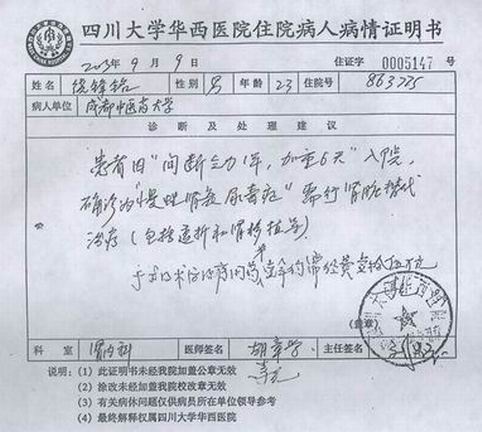 四川大学华西医院住院病人病情证明书
2003年9月9日 住证字 0005147 号
姓名 饶锋 性别 男 年龄 23 住院号 863775
病人单位 成都中医药大学
诊断及处理建议
患者因"间断乏力1年，加重6天"入院，
确诊为"慢性肾炎 尿毒症" 需行肾脏替代
治疗（包括透析和肾移植等）
手术 费 约需经费 万元
(盖章)
科室 肾内科 医师签名 胡章学 主任签名
说明: (1) 此证明书未经我院加盖公章无效
(2) 涂改未经加盖我院校改章无效
(3) 有关病休问题仅供病员所在单位领导参考
(4) 最终解释权属四川大学华西医院